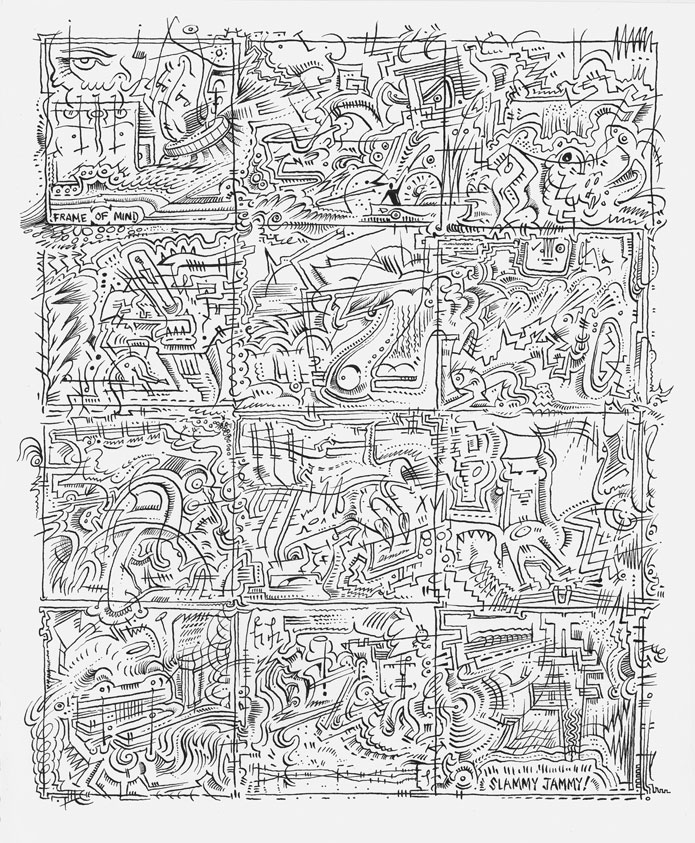 FRAME OF MIND
SLAMMY JAMMY!